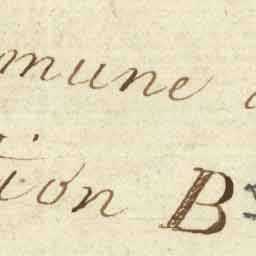 mmune
tion B